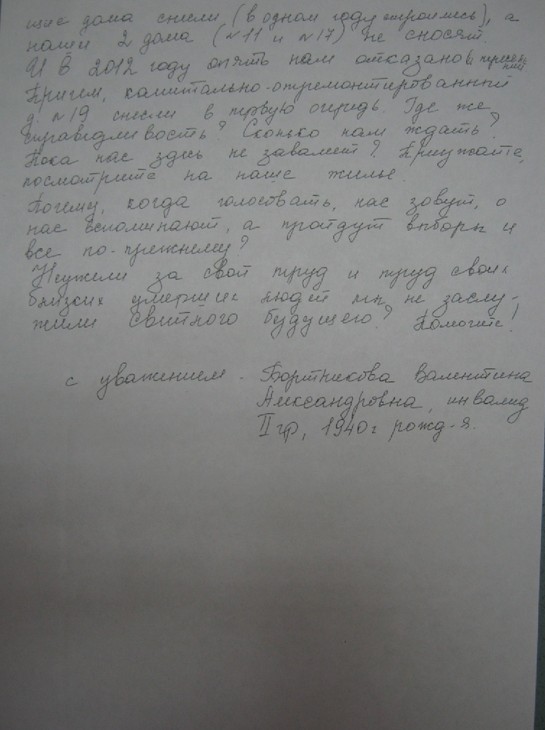 щие дома снесли (в одном году строились), а
наши 2 дома (№11 и №17) не сносят.
И в 2012 году опять нам отказано в пересел
нии
Причем, капитально-отремонтированный
д. №19 снесли в первую очередь. Где же
справедливость? Сколько нам ждать?
Пока нас здесь не завалит? Приезжайте,
посмотрите на наше жилье.
Почему, когда голосвать, нас зовут, о
нас вспоминают, а пройдут выборы и
все по-прежнему?
Неужели за свой труд и труд своих
близких умерших людей мы не заслу-
жили светлого будущего? Помогите!
с уважением - Бортникова Валентина
Александровна, инвалид
II гр, 1940г рожд-я.